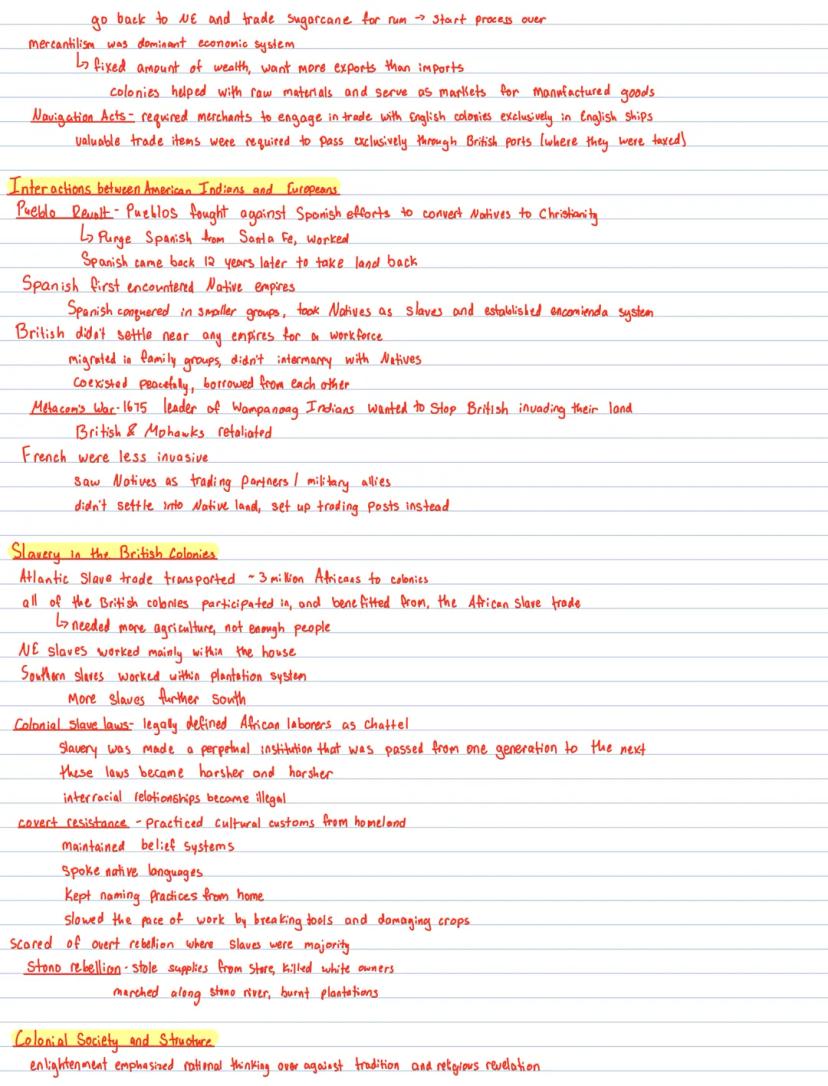 go back to NE and trade sugarcane for rum → start process over
mercantilism was dominant economic system
↳ fixed amount of wealth, want more exports than imports
colonies helped with raw materials and serve as markets for manufactured goods
Navigation Acts- required merchants to engage in trade with English colonies exclusively in English ships
valuable trade items were required to pass exclusively through British ports (where they were taxed)
Interactions between American Indians and Europeans
Pueblo Revolt - Pueblos fought against Spanish efforts to convert Natives to Christianity
↳ Purge Spanish from Santa Fe, worked
Spanish came back 12 years later to take land back
Spanish first encountered Native empires
Spanish conquered in smaller groups, took Natives as slaves and established encomienda system
British didn't settle near any empires for a workforce
migrated in family groups, didn't intermarry with Natives
Coexisted peacefully, borrowed from each other
Metacom's War- 1675 leader of Wampanoag Indians wanted to stop British invading their land
British & Mohawks retaliated
French were less invasive
saw Natives as trading partners / military allies
didn't settle into Native land, set up trading posts instead
Slavery in the British Colonies
Atlantic Slave trade transported ~3 million Africans to colonies
all of the British colonies participated in, and benefitted from, the African slave trade
↳ needed more agriculture, not enough people
NE slaves worked mainly within the house
Southern slaves worked within plantation system
More slaves further south
Colonial slave laws- legally defined African laborers as chattel
Slavery was made a perpetual institution that was passed from one generation to the next
these laws became harsher and harsher
interracial relationships became illegal
covert resistance - Practiced cultural customs from homeland
maintained belief systems
Spoke native languages
Kept naming practices from home
Slowed the pace of work by breaking tools and damaging crops
Scared of overt rebellion where slaves were majority
Stono rebellion - stole supplies from store, killed white owners
marched along stono river, burnt plantations
Colonial Society and Structure
enlightenment emphasized rational thinking over against tradition and religious revelation